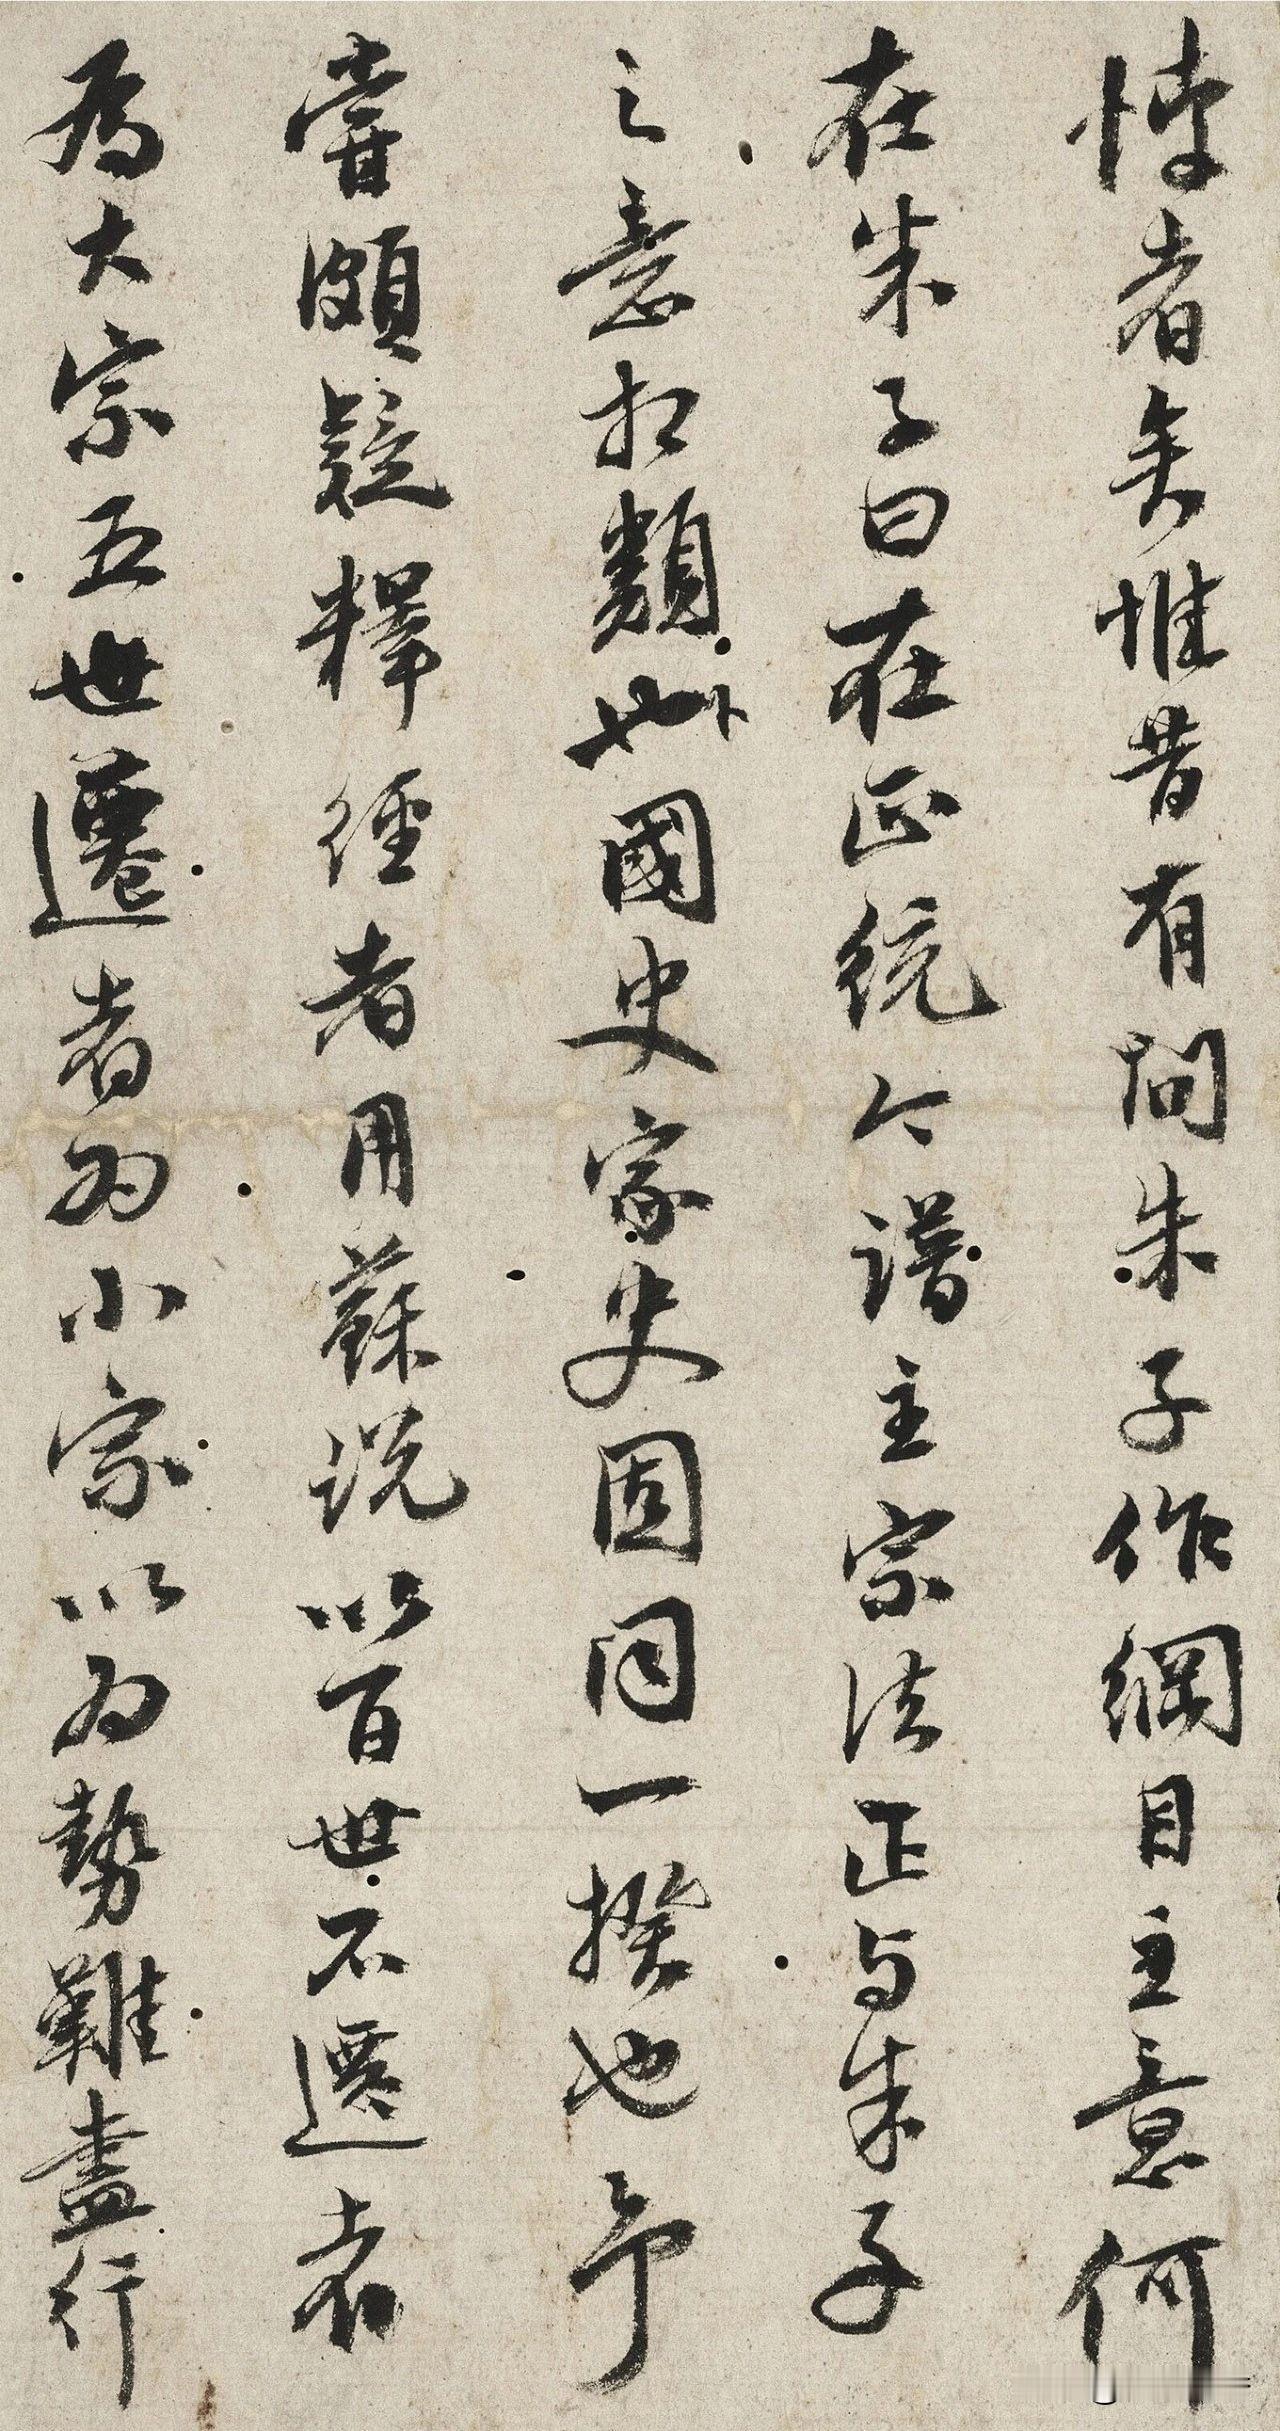 悖者矣惟昔有問朱子作綱目主意何
在朱子曰在正統今譜主宗法正与朱子
之意相類也卜國史家史固同一揆也予
嘗頗疑釋經者用蘇說以百世不遷者
為大宗五世遷者為小宗以為勢難盡行